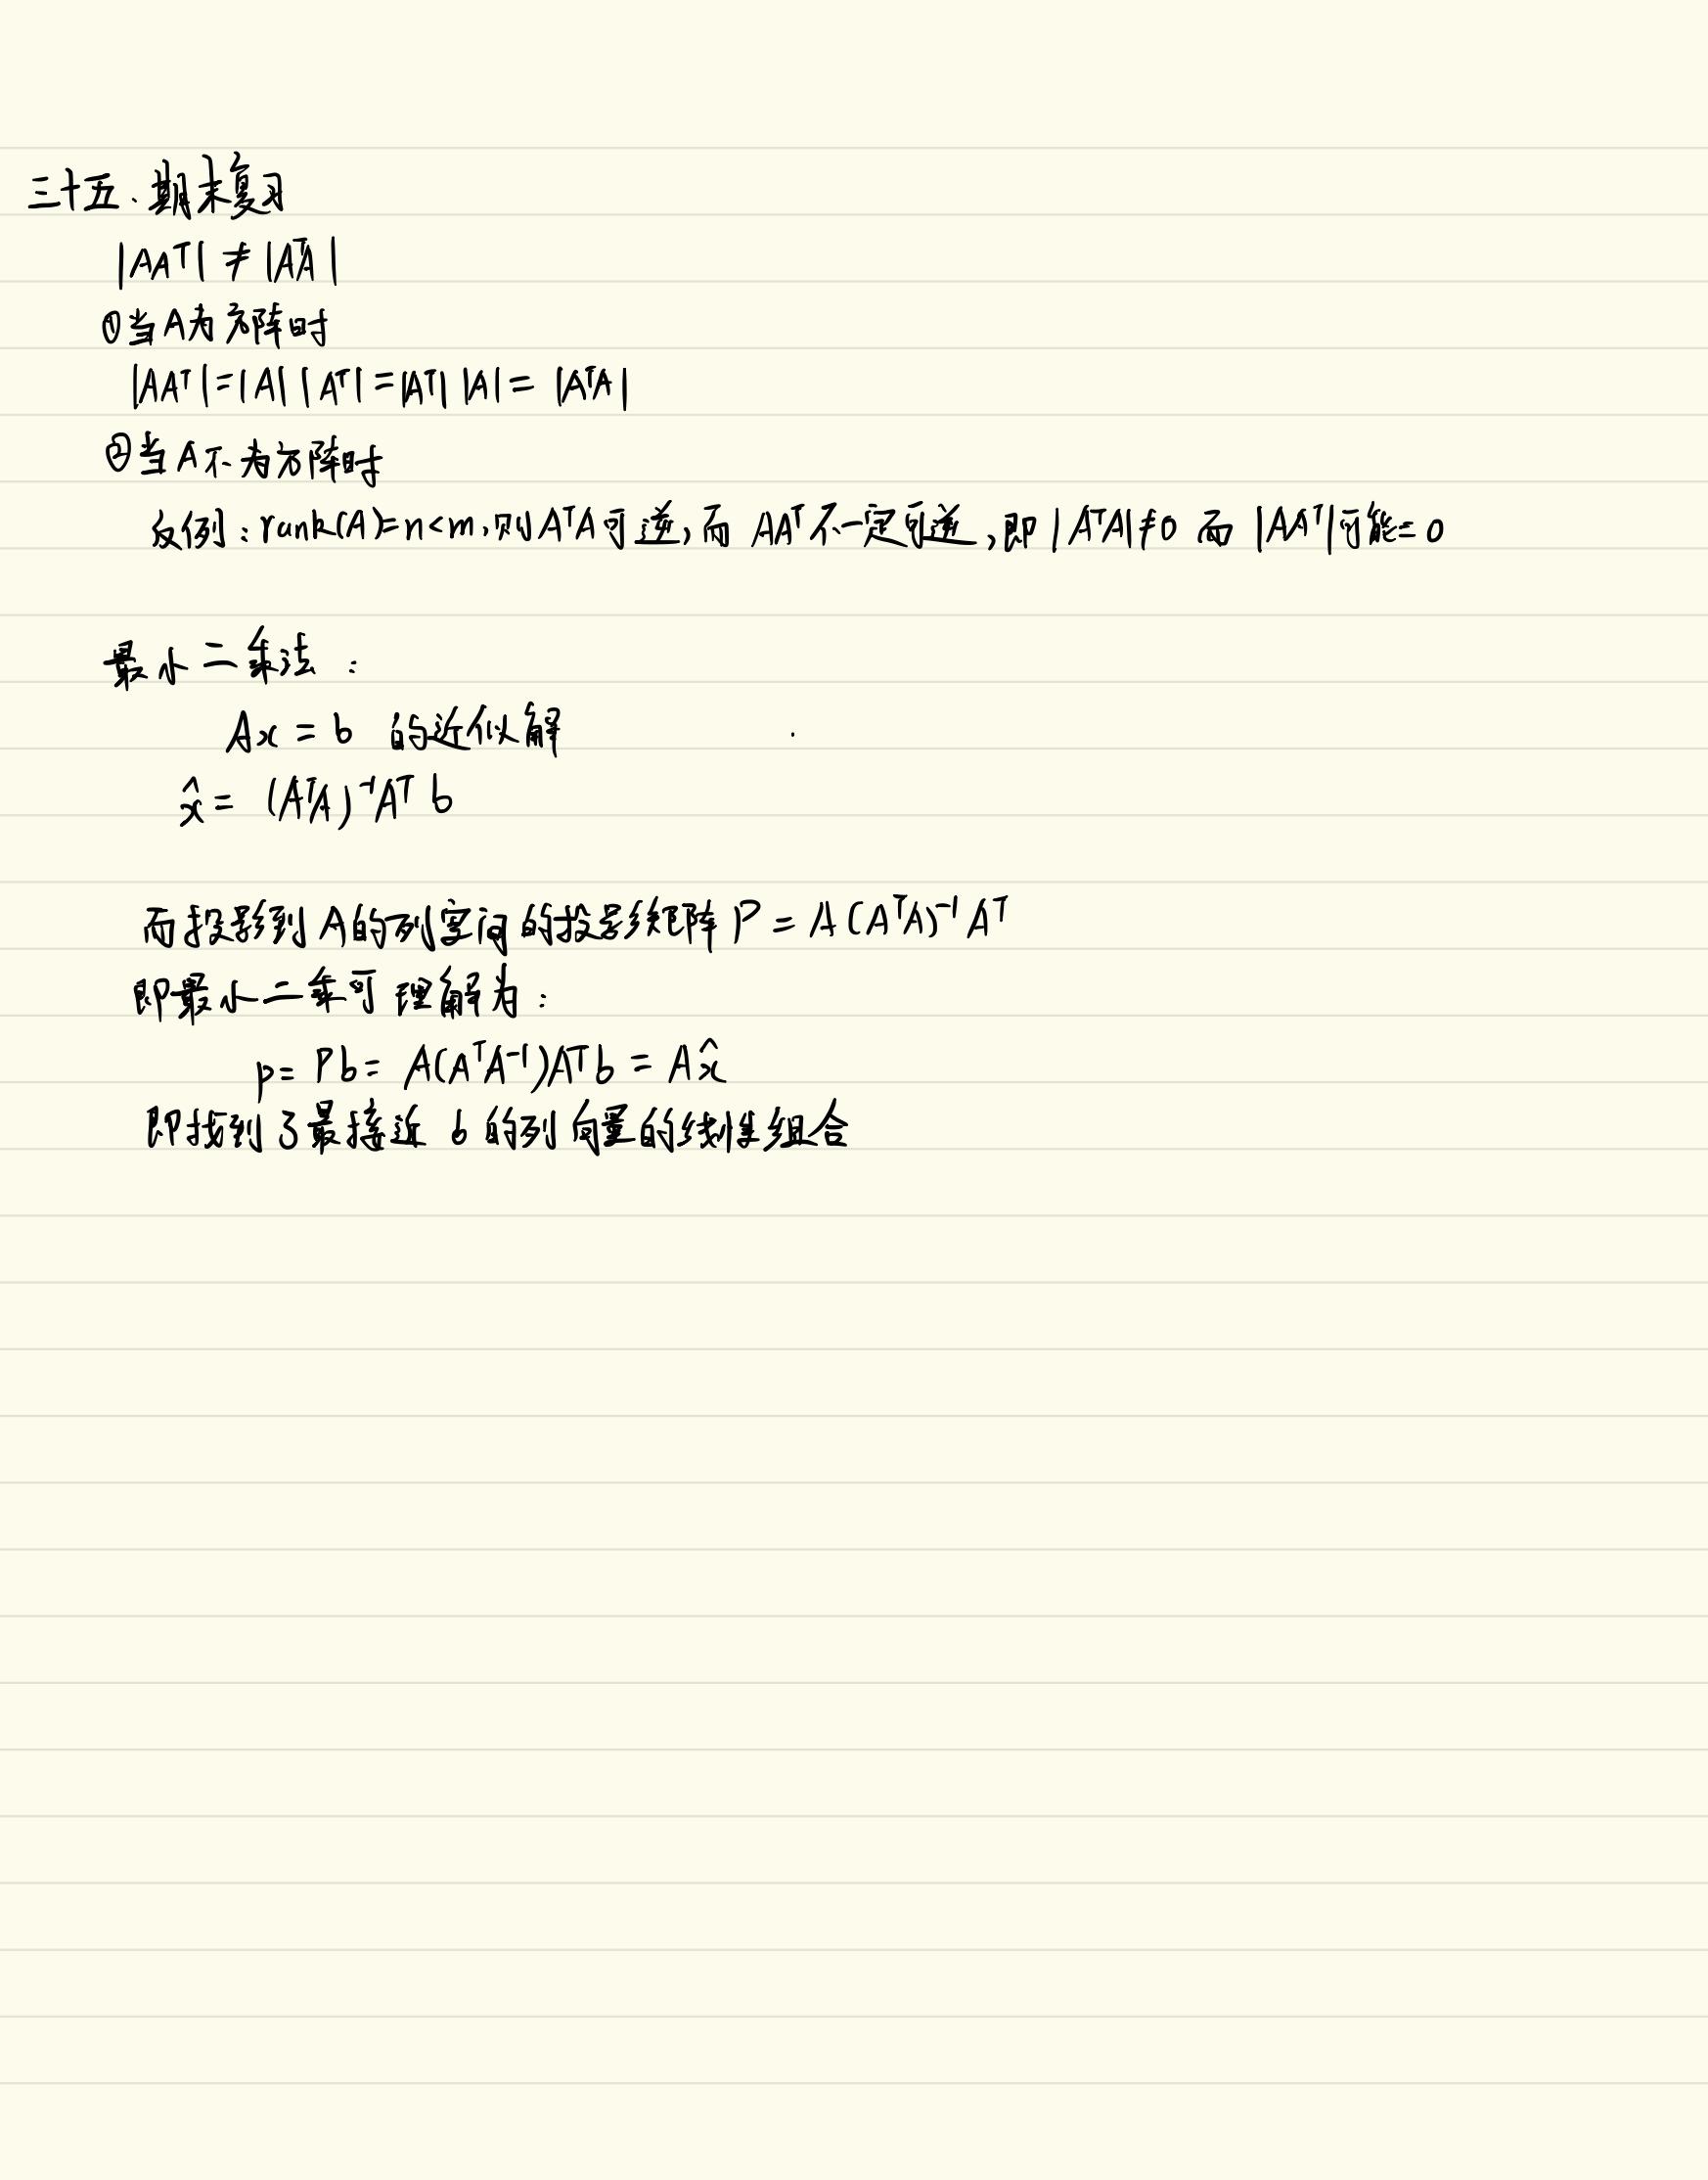 三十五、期末复习
|AAᵀ| ≠ |AᵀA|
①当A为方阵时
|AAᵀ|=|A||Aᵀ|=|Aᵀ||A|=|AᵀA|
②当A不为方阵时
反例：rank(A)=n<m，则AᵀA可逆，而AAᵀ不一定可逆，即|AᵀA|≠0 而 |AAᵀ|可能=0
最小二乘法：
Ax=b 的近似解
x̂=(AᵀA)⁻¹Aᵀb
而投影到A的列空间的投影矩阵P=A(AᵀA)⁻¹Aᵀ
即最小二乘可理解为：
p=Pb=A(AᵀA⁻¹)Aᵀb=Ax̂
即找到了最接近b的列向量的线性组合